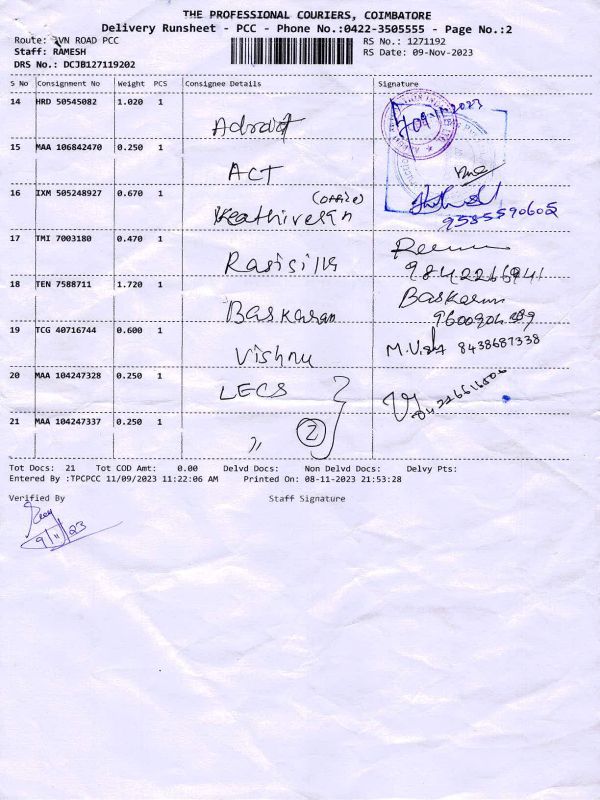 THE PROFESSIONAL COURIERS, COIMBATORE
Delivery Runsheet - PCC - Phone No.:0422-3505555 - Page No.:2
Route: AVN ROAD PCC RS No.: 1271192
Staff: RAMESH RS Date: 09-Nov-2023
DRS No.: DCJB127119202
S No Consignment No Weight PCS Consignee Details Signature
14 HRD 50545082 1.020 1
15 MAA 106842470 0.250 1 ACT
(office)
16 IXM 505248927 0.670 1 Keathiresan 9585590605
17 TMI 7003180 0.470 1
18 TEN 7588711 1.720 1 Baskaran Baskaran
19 TCG 40716744 0.600 1 Vishnu M.Vishnu 8438687338
20 MAA 104247328 0.250 1 LECS
21 MAA 104247337 0.250 1 " 2
Tot Docs: 21 Tot COD Amt: 0.00 Delvd Docs: Non Delvd Docs: Delvy Pts:
Entered By :TPCPCC 11/09/2023 11:22:06 AM Printed On: 08-11-2023 21:53:28
Verified By Staff Signature
9/11/23